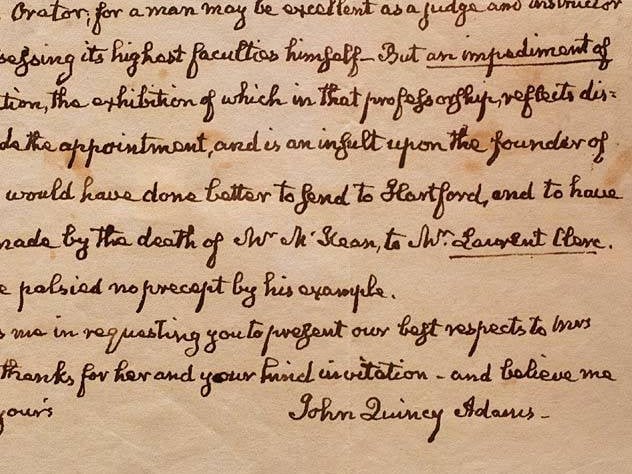 Orator; for a man may be excellent as a judge and instructor
sessing its highest faculties himself – But an impediment of
tion, the exhibition of which in that professorship, reflects dis=
de the appointment, and is an insult upon the founder of
would have done better to send to Hartford, and to have
made by the death of Mr McKean, to Mr. Laurent Clerc.
e palsied no precept by his example.
s me in requesting you to present our best respects to Mrs
thanks for her and your kind invitation – and believe me
yours John Quincy Adams –